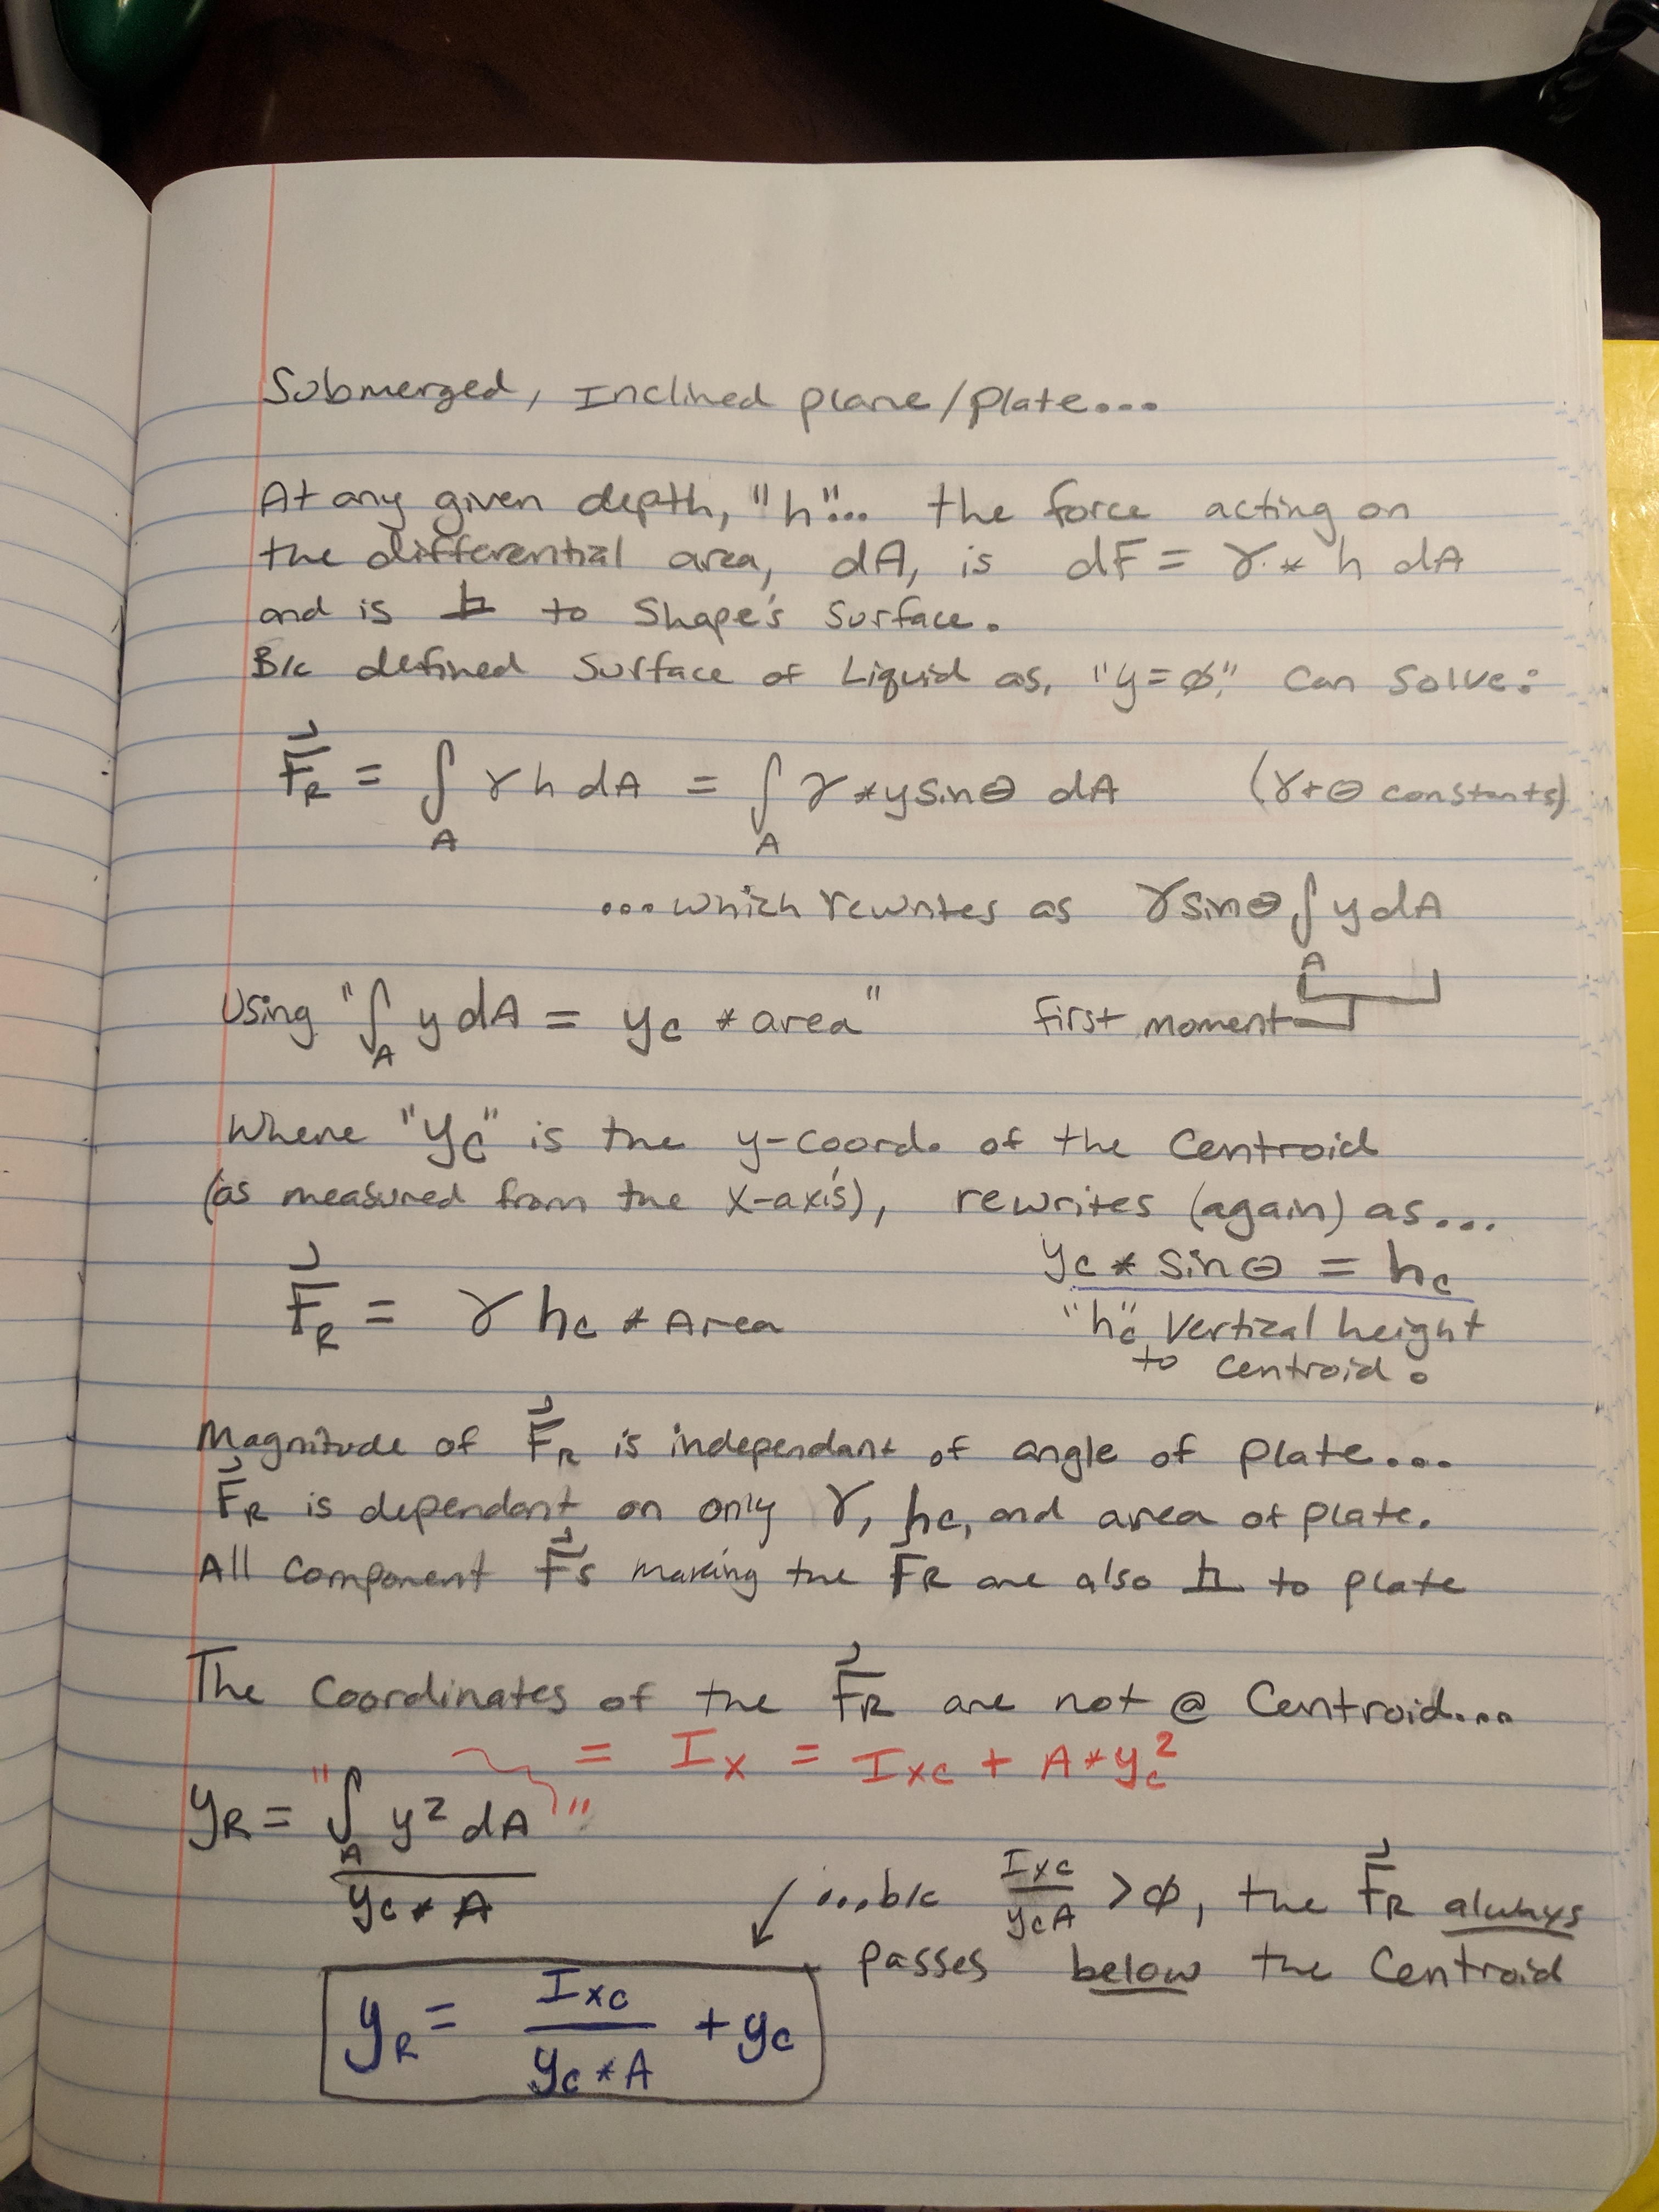 Submerged, Inclined plane/plate...
At any given depth, "h"... the force acting on
the differential area, dA, is dF = γ * h dA
and is ⊥ to Shape's Surface.
B/c defined Surface of Liquid as, "y=∅." Can Solve:
F⃗_R = ∫_A γ h dA = ∫_A γ * y sin θ dA (γ + θ constants)
...which rewrites as γ sin θ ∫_A y dA
Using "∫_A y dA = y_c * area" first moment
Where "y_c" is the y-coord. of the Centroid
(as measured from the x-axis), rewrites (again) as...
y_c * sin θ = h_c
F⃗_R = γ h_c * Area
"h_c" Vertical height
to centroid.
Magnitude of F⃗_R is independant of angle of plate...
F⃗_R is dependant on only γ, h_c, and area of plate.
All component F⃗'s making the F⃗_R are also ⊥ to plate
The Coordinates of the F⃗_R are not @ Centroid....
= I_x = I_xc + A * y_c^2
y_R = "∫_A y^2 dA"
y_c * A
...b/c I_xc / y_c A > ∅, the F⃗_R always
passes below the Centroid
y_R = I_xc / y_c * A + y_c